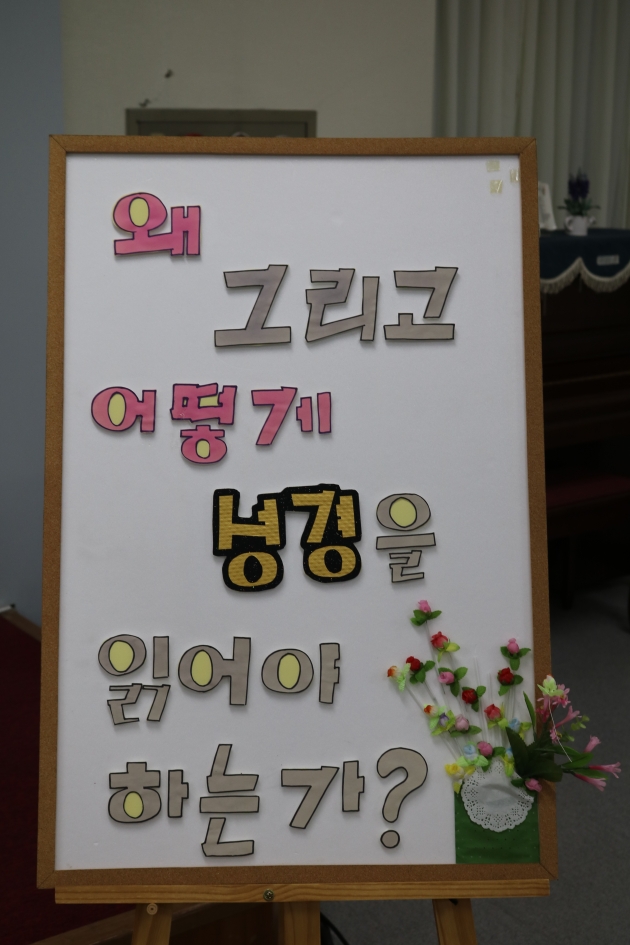 왜
그리고
어떻게
성경을
읽어야
하는가?